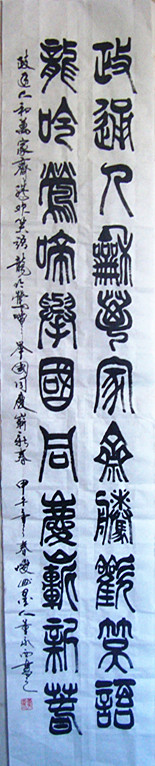 政通人龢萬家齊騰歡笑語
龍吟鶯啼舉國同慶嶄新春
政通人和萬家齊騰歡笑語龍吟鶯啼舉國同慶嶄新春 甲午年春